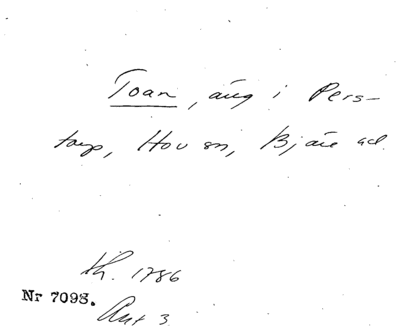 Toan, äng i Pers-
torp, Hov sn, Bjäre hd.
th. 1786
Nr 7098.
Akt 3